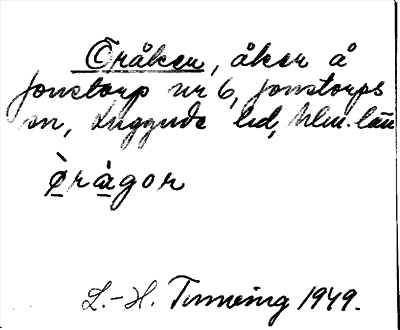 Öråker, åker å
Jonstorp nr 6, Jonstorps
sn, Luggude hd, Mlm. län
ò̱rà̱gor
L.-H. Tunving 1949.